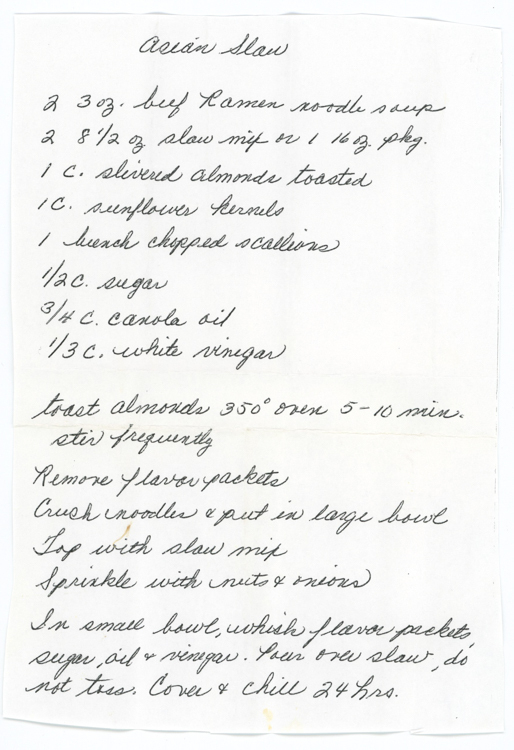 Asian Slaw
2 3 oz. beef Ramen noodle soup
2 8 1/2 oz slaw mix or 1 16 oz. pkg.
1 C. slivered almonds toasted
1 C. sunflower kernels
1 bunch chopped scallions
1/2 C. sugar
3/4 C. canola oil
1/3 C. white vinegar
toast almonds 350° oven 5-10 min.
stir frequently
Remove flavor packets
Crush noodles & put in large bowl
Top with slaw mix
Sprinkle with nuts & onions
In small bowl, whisk flavor packets,
sugar, oil & vinegar. Pour over slaw, do
not toss. Cover & chill 24 hrs.